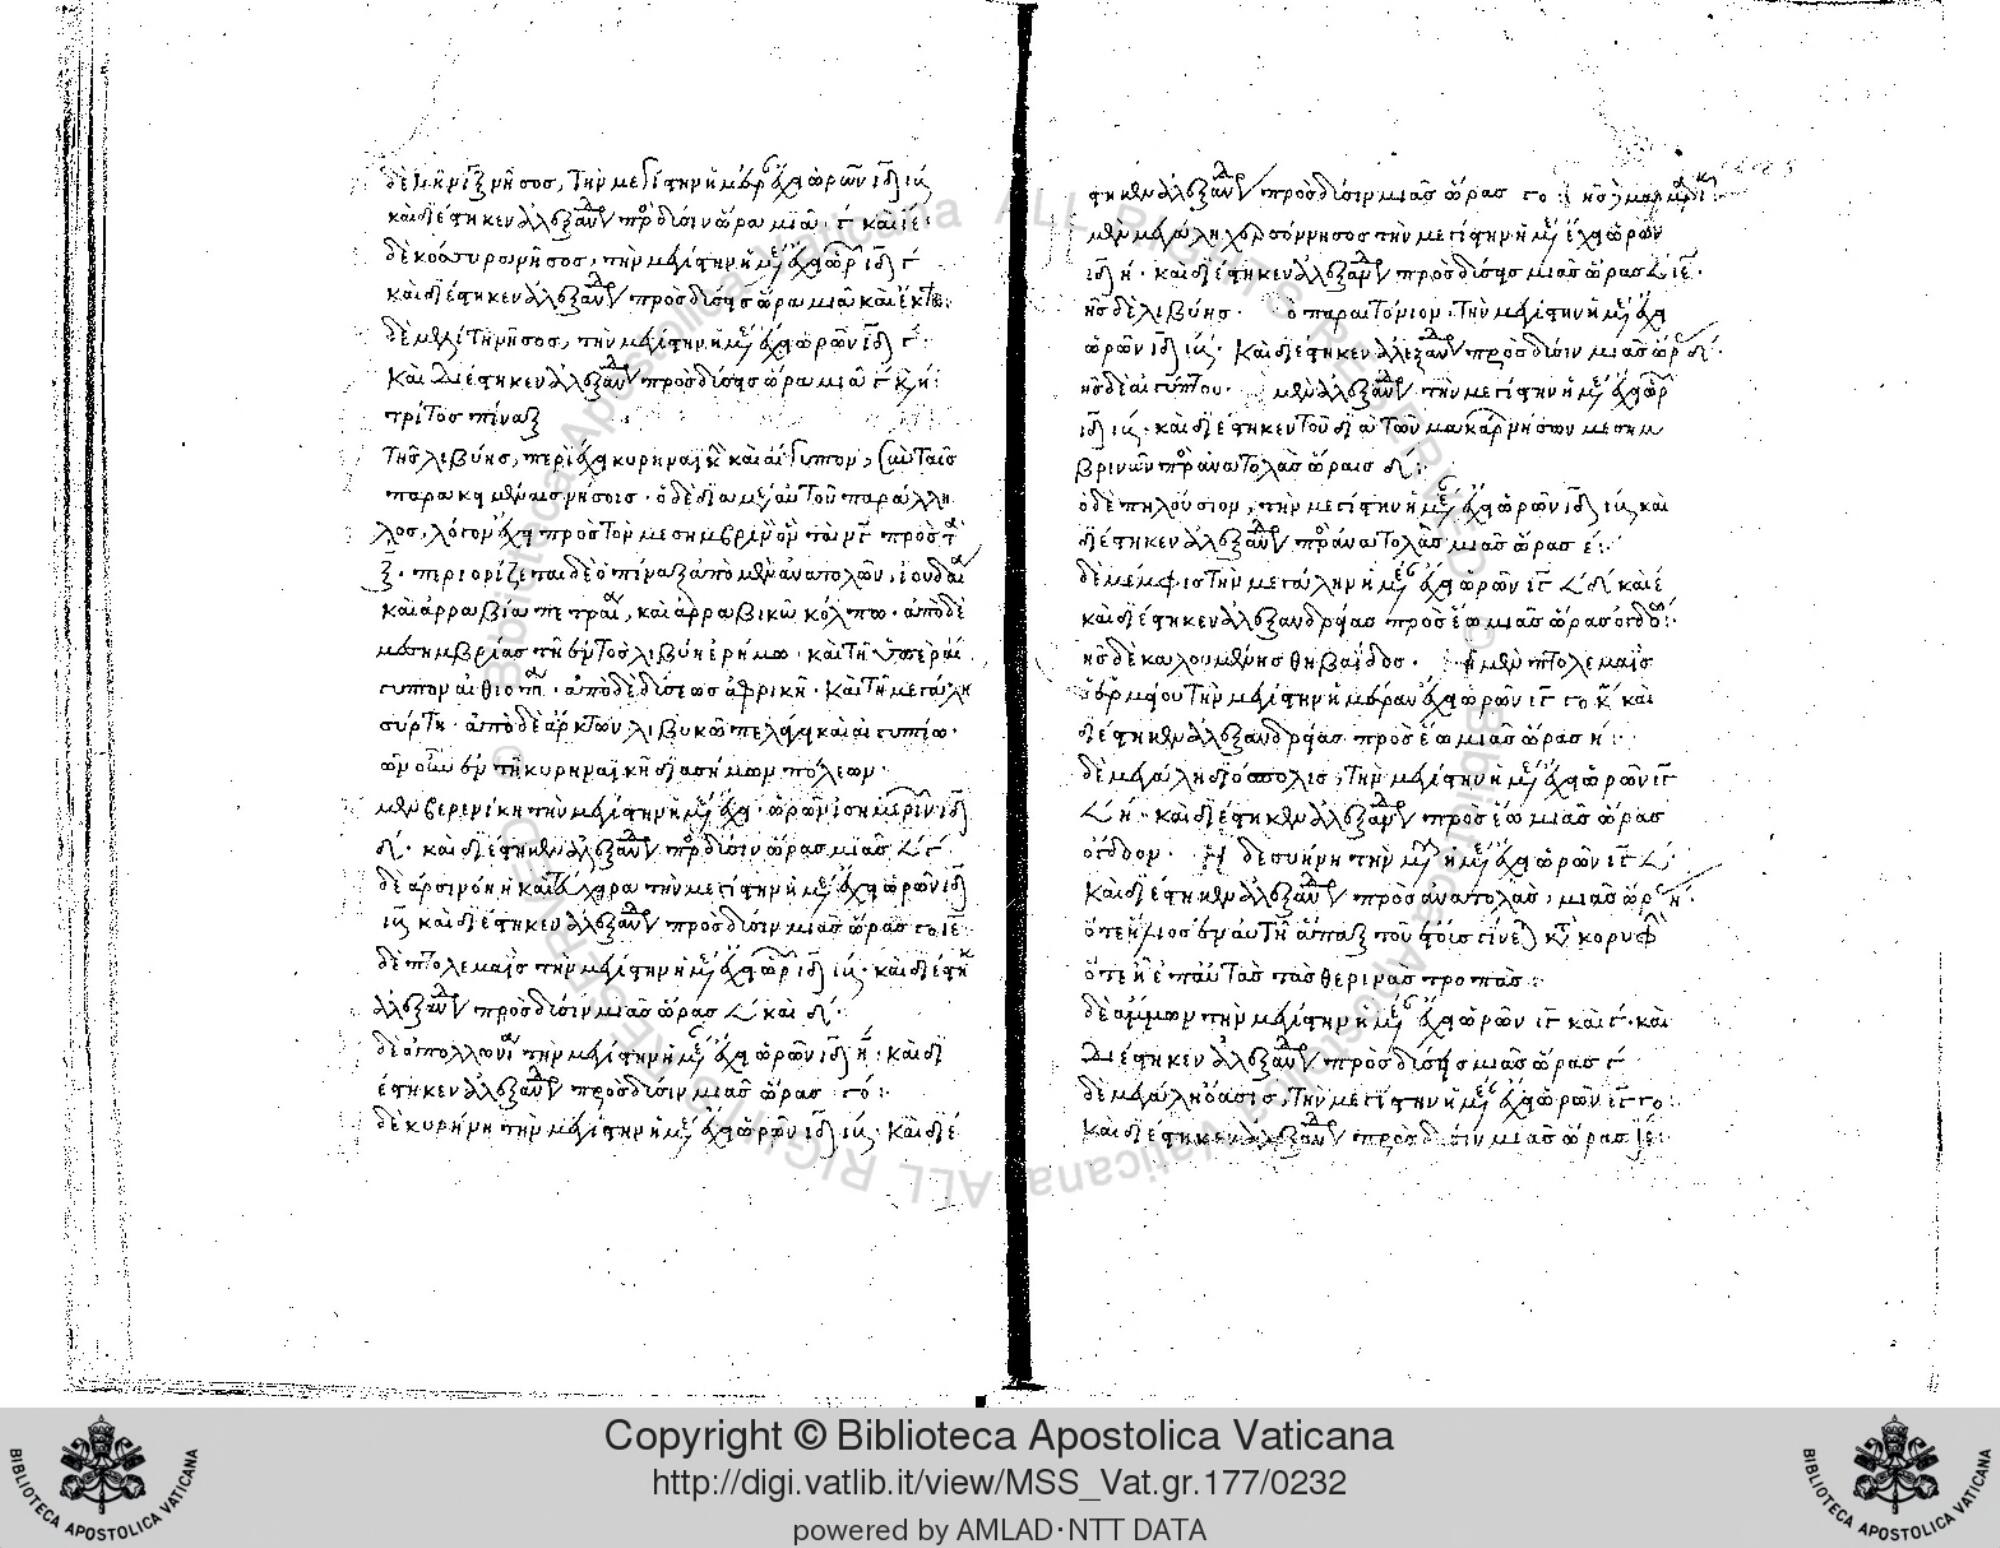 δὲ μῆνιξ νῆσος, τὴν μεγίστην ἡμέρ ἔχει ὡρῶν ιδ
καὶ διέστηκεν ἀλεξαν πρὸ δύσιν ὥρα μιᾶ γ καὶ ιε
δὲ κόσσυρα νῆσος, τὴν μεγίστην ἡμ ἔχει ὡρ ιδ γ
καὶ διέστηκεν ἀλεξαν πρὸς δύσεις ὥρα μιᾶ καὶ ἕκτω
δὲ μελίτη νῆσος, τὴν μεγίστην ἡμ ἔχει ὡρῶν ιδ γ
καὶ διέστηκεν ἀλεξαν πρὸς δύσεις ὥρα μιᾶ
τρίτος πίναξ
τῆς λιβύης, περιέχει κυρηναικ καὶ αἴγυπτον, σὺν ταῖς
παρακειμέναις νήσοις· ὁ δὲ διὰ μέσου αὐτοῦ παράλλη
λος, λόγον ἔχει πρὸς τὸν μεσημβρινὸν ὃν τὰ νγ πρὸς τ
ξ· περιορίζεται δὲ ὁ πίναξ ἀπὸ μὲν ἀνατολῶν, ἰουδαι
καὶ ἀρραβία πετραι, καὶ ἀρραβικῶ κόλπω· ἀπὸ δὲ
μεσημβρίας τῆ ἐντὸς λιβύη ἐρήμω· καὶ τῆ ὑπὲρ αἴ
γυπτον αἰθιοπ· ἀπὸ δὲ δύσεως ἀφρικῆ· καὶ τῆ μεγάλη
σύρτη· ἀπὸ δὲ ἄρκτων λιβυκῶ πελάγει καὶ αἰγυπτίω·
τῶν οὖν ἐν τῆ κυρηναικῆ διασήμων πόλεων·
μὲν βερενίκη τὴν μεγίστην ἡμ ἔχει· ὡρῶν ἰσημεριν ιδ
δ· καὶ διέστηκεν ἀλεξαν πρὸ δύσιν ὥρας μιᾶς γ
δὲ ἀρσινόη ἡ καὶ τεύχειρα τὴν μεγίστην ἡμ ἔχει ὡρῶν ιδ
καὶ διέστηκεν ἀλεξαν πρὸς δύσιν μιᾶς ὥρας γο ιε
δὲ πτολεμαῒς τὴν μεγίστην ἡμ ἔχει ὡρ ιδ· καὶ διέστη
ἀλεξαν πρὸς δύσιν μιᾶς ὥρας καὶ δ·
δὲ ἀπολλωνι τὴν μεγίστην ἡμ ἔχει ὡρῶν ιδ η· καὶ δι
έστηκεν ἀλεξαν πρὸς δύσιν μιᾶς ὥρας γο:
δὲ κυρήνη τὴν μεγίστην ἡμ ἔχει ὡρῶν ιδ· καὶ διέ
στηκεν ἀλεξαν πρὸς δύσιν μιᾶς ὥρας γο
μὲν μεγάλη χερσόννησος τὴν μεγίστην ἡμ ἔχει ὡρῶν
ιδ η· καὶ διέστηκεν ἀλεξαν πρὸς δύσεις μιᾶς ὥρας ιε·
τῆς δὲ λιβύης· ὁ παραιτόνιον, τὴν μεγίστην ἡμ ἔχει
ὡρῶν ιδ· καὶ διέστηκεν ἀλεξαν πρὸς δύσιν μιᾶς ὥρ δ·
τῆς δὲ αἰγύπτου· μὲν ἀλεξαν τὴν μεγίστην ἡμ ἔχει ὡρ
ιδ· καὶ διέστηκεν τοῦ διὰ τῶν μακάρ νήσων μεσημ
βρινῶν πρὸ ἀνατολὰς ὥραις δ:
ὁ δὲ πηλούσιον, τὴν μεγίστην ἡμ ἔχει ὡρῶν ιδ καὶ
διέστηκεν ἀλεξαν πρὸ ἀνατολὰς μιᾶς ὥρας ε:
δὲ μέμφις τὴν μεγάλην ἡμ ἔχει ὡρῶν ιγ δ καὶ ε
καὶ διέστηκεν ἀλεξανδρείας πρὸς ἕω μιᾶς ὥρας ὀγδο:
τῆς δὲ καλουμένης θηβαΐδος· ἡ μὲν πτολεμαῒς
ἑρμείου τὴν μεγίστην ἡμέραν ἔχει ὡρῶν ιγ γο κ καὶ
διέστηκεν ἀλεξανδρείας πρὸς ἕω μιᾶς ὥρας η:
δὲ μεγάλη διόσπολις, τὴν μεγίστην ἡμ ἔχει ὡρῶν ιγ
η· καὶ διέστηκεν ἀλεξαν πρὸς ἕω μιᾶς ὥρας
ὄγδοον· ἡ δὲ συήνη τὴν ἡμ ἔχει ὡρῶν ιγ
καὶ διέστηκεν ἀλεξαν πρὸς ἀνατολὰς, μιᾶς ὥρ η·
ὅτε ἥλιος ἐν αὐτῆ ἅπαξ τοῦ ἔτους γίνε κατ κορυφ
ὅτε ἦ ἐπ αὐτὰς τὰς θερινὰς τροπάς:
δὲ ἄμμων τὴν μεγίστην ἡμ ἔχει ὡρῶν ιγ καὶ γ· καὶ
διέστηκεν ἀλεξαν πρὸς δύσεις μιᾶς ὥρας γ
δὲ μεγάλη ὄασις, τὴν μεγίστην ἡμ ἔχει ὡρῶν ιγ γο:
καὶ διέστηκεν ἀλεξαν πρὸς δύσιν μιᾶς ὥρας ιε:
Copyright © Biblioteca Apostolica Vaticana
http://digi.vatlib.it/view/MSS_Vat.gr.177/0232
powered by AMLAD·NTT DATA
BIBLIOTECA APOSTOLICA VATICANA
BIBLIOTECA APOSTOLICA VATICANA